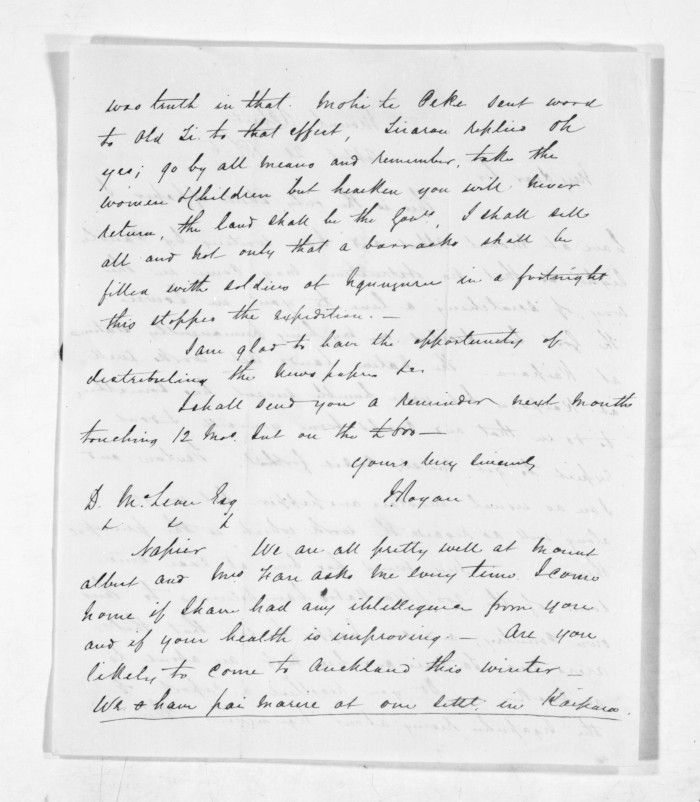 was truth in that. Mohi te Peke sent word
to Old Ti. to that effect, Tirarau replies Oh
yes; go by all means and remember, take the
women & Children but hearken you will never
return, the land shall be the Govts, I shall sell
all and not only that a barracks shall be
filled with soldiers at Ngunguru in a fortnight
this stopped the expedition. —
I am glad to have the opportunity of
distributing the newspapers &c
I shall send you a reminder next months
touching 12 mos. Int on the £600 —
Yours very sincerely
D. McLean Esq J Rogan
Napier We are all pretty well at Mount
albert and Mrs asks me every time I come
home if I have had any intelligence from you
and if your health is improving — Are you
likely to come to Auckland this winter —
We have pai marire at our settt. in Kaipara.